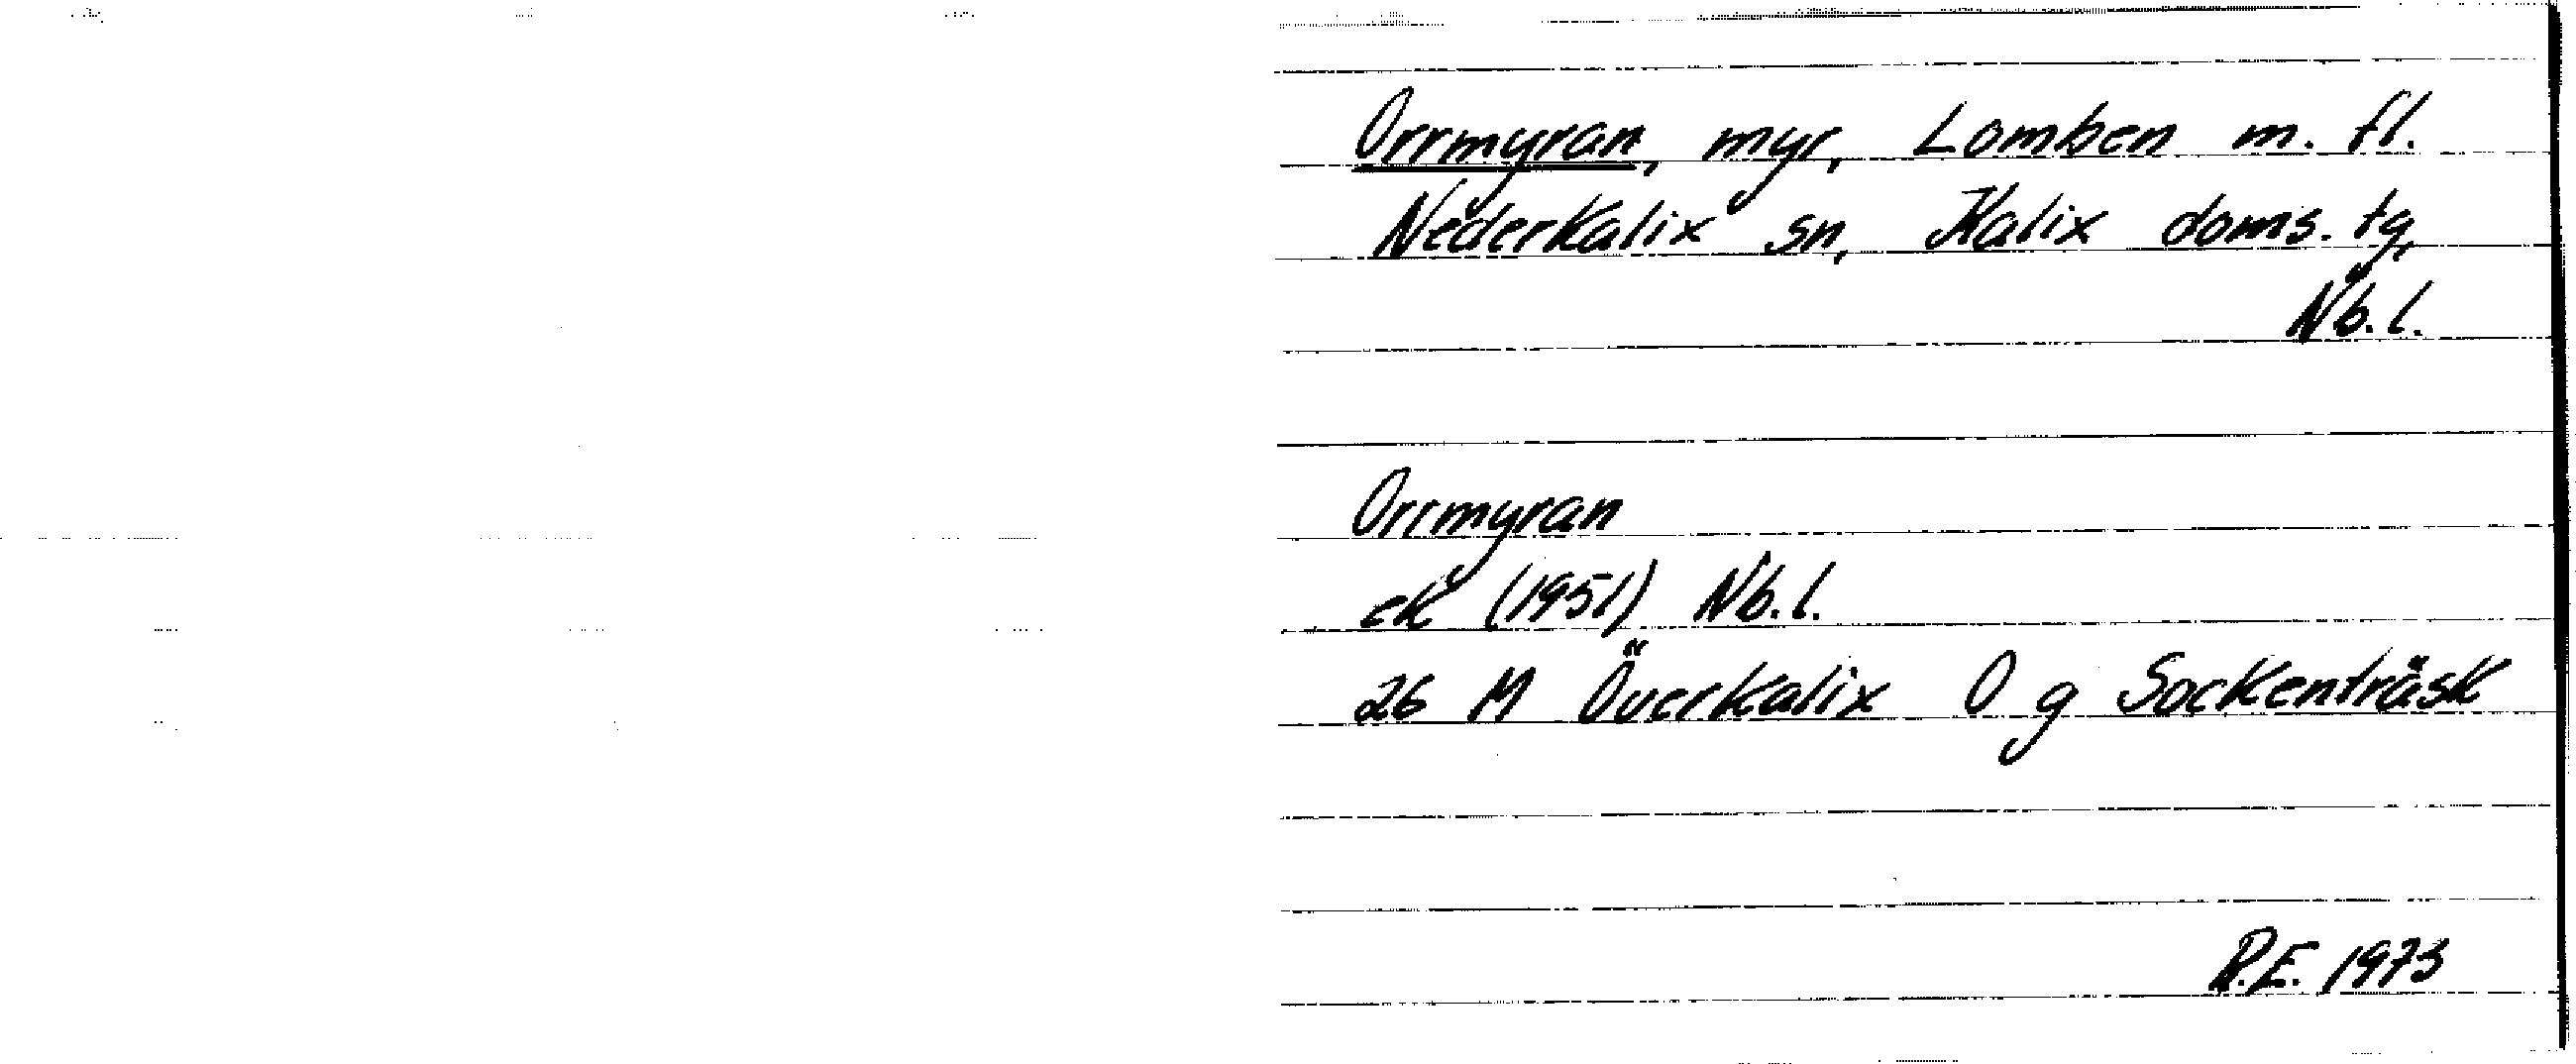 Orrmyran, myr, Lomben m. fl.
Nederkalix sn, Kalix doms. tg,
Nb. l.
Orrmyran
ek (1951) Nb. l.
26 M Överkalix O g Sockenträsk
R.E. 1973